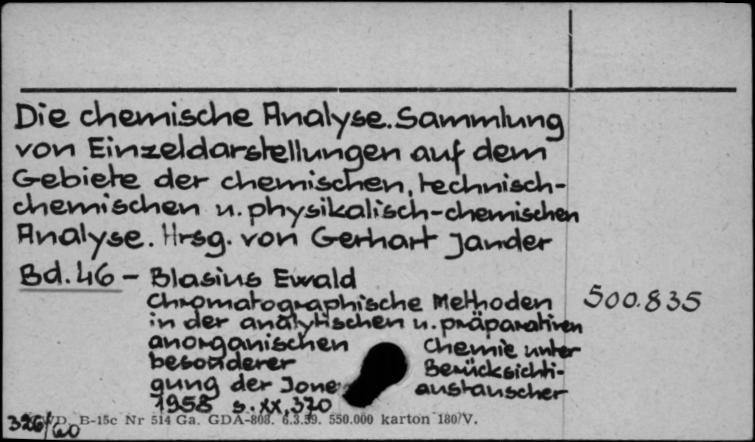 Die chemische Analyse. Sammlung
von Einzeldarstellungen auf dem
Gebiete der chemischen, technisch-
chemischen u. physikalisch-chemischen
Analyse. Hrsg. von Gerhart Jander
Bd. 46 - Blasius Ewald
Chromatographische Methoden 500.835
in der analytischen u. präparativen
anorganischen Chemie unter
besonderer Berücksichti-
gung der Ione austauscher
1958 s. XX, 370
326/60 D. B-15c Nr 514 Ga. GDA-808. 6.3.59. 550.000 karton 180/V.